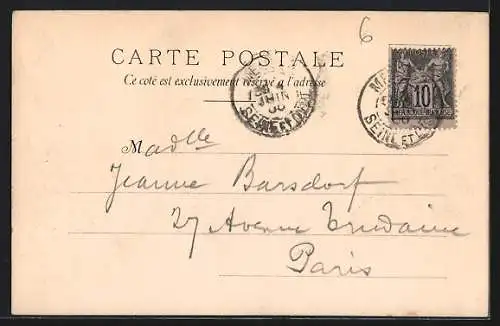 6
CARTE POSTALE
Ce coté est exclusivement réservé a l'adresse
JUIN
SEINE ET OISE
10
SEINE ET OISE
Madlle
Jeanne Barsdorf
27 Avenue Trudaine
Paris